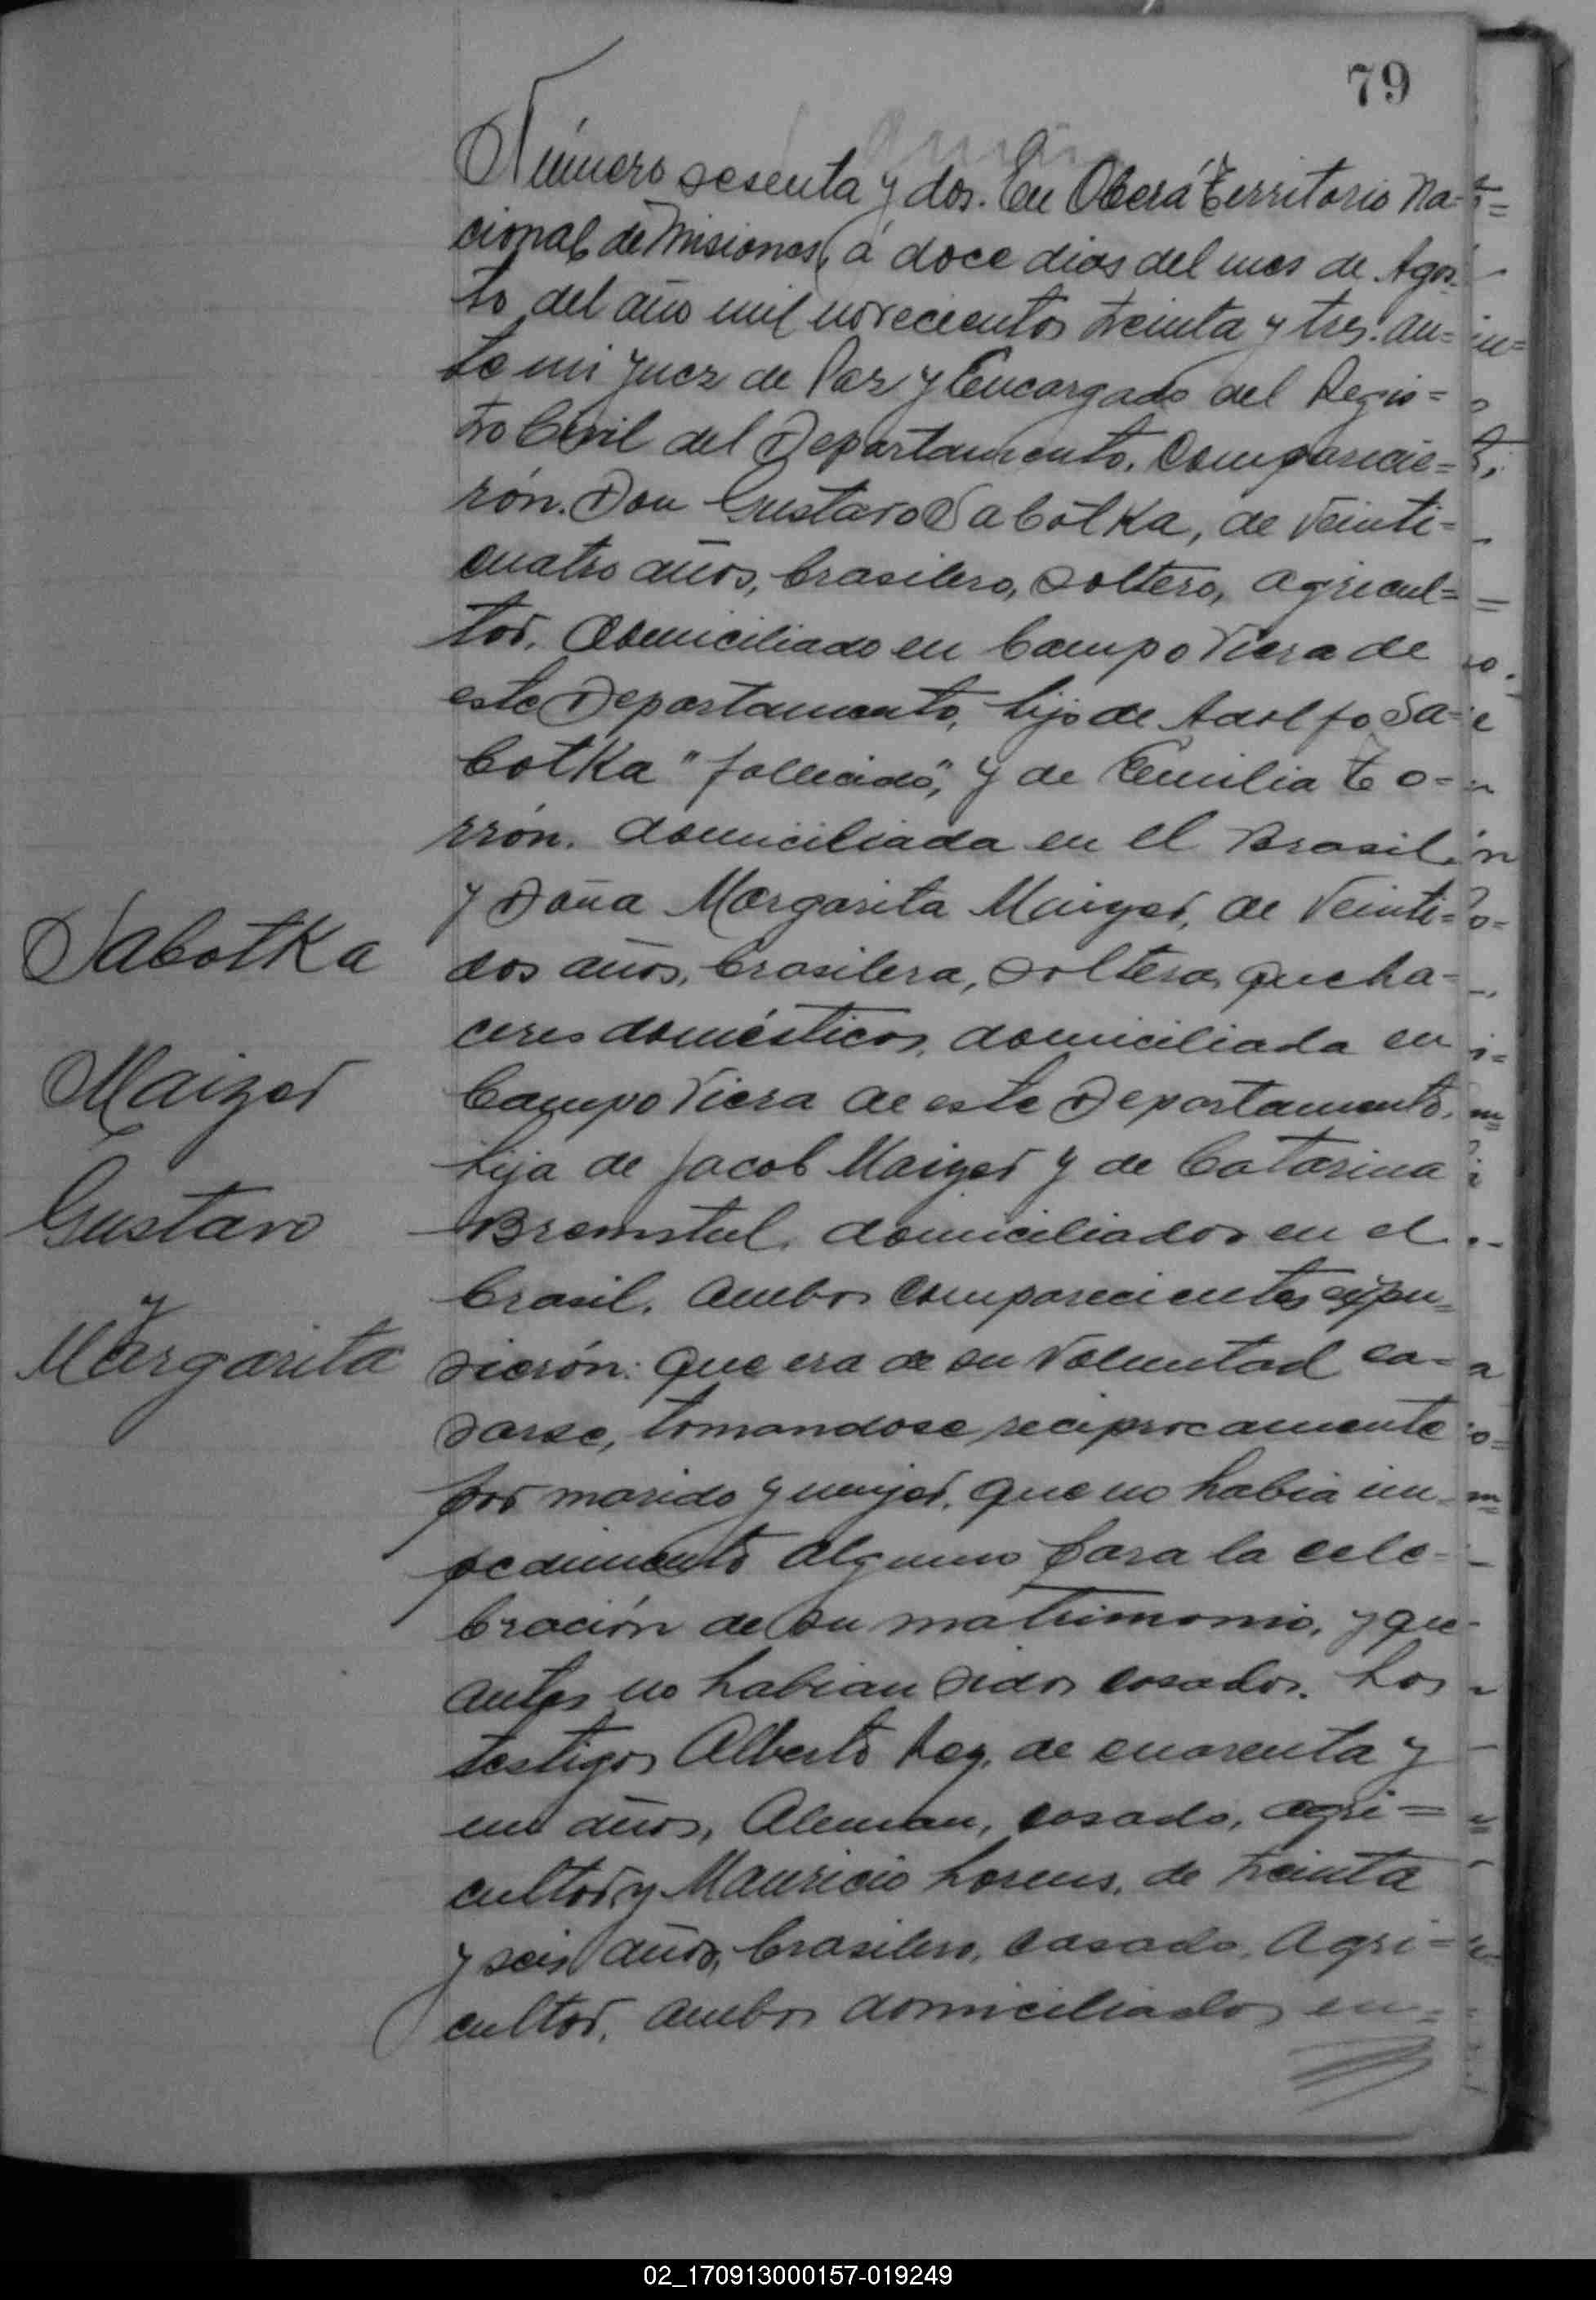 79
Número sesenta y dos. En Oberá Territorio Na=
cional de Misiones, á doce dias del mes de Agos-
to del año mil novecientos treinta y tres. an=
te mi Juez de Paz y Encargado del Regis=
tro Civil del Departamento. Comparecie=
rón. Don Gustavo Sabotka, de Veinti=
cuatro años, brasilero, soltero, agricul=
tor, domiciliado en Campo Viera de
este Departamento, hijo de Adolfo Sa=
botka "fallecido", y de Emilia To=
rrón. domiciliada en el Brasil.
y Doña Margarita Maizer, de Veinti=
dos años, brasilera, soltera, queha=
ceres domésticos, domiciliada en
Campo Viera de este Departamento.
hija de Jacob Maizer y de Catarina
domiciliados en el
brasil. ambos comparecientes expu=
sierón: que era de su Voluntad ca=
sarse, tomandose reciprocamente
por marido y mujer. que no habia im-
pedimento alguno para la cele-
bración de su matrimonio, y que
antes no habian sidos casados. Los
testigos Alberto de cuarenta y
un años, Aleman, casado, agri=
cultor, y Mauricio Lorens, de treinta
y seis años, brasilero, casado, Agri=
cultor, ambos domiciliados en=
Sabotka
Maizer
Gustavo
y
Margarita
02_170913000157-019249